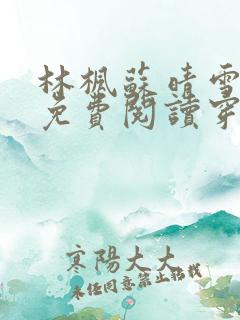 林楓蘇晴雪
免費閱讀穿
寒陽大大
未任同意禁止轉載